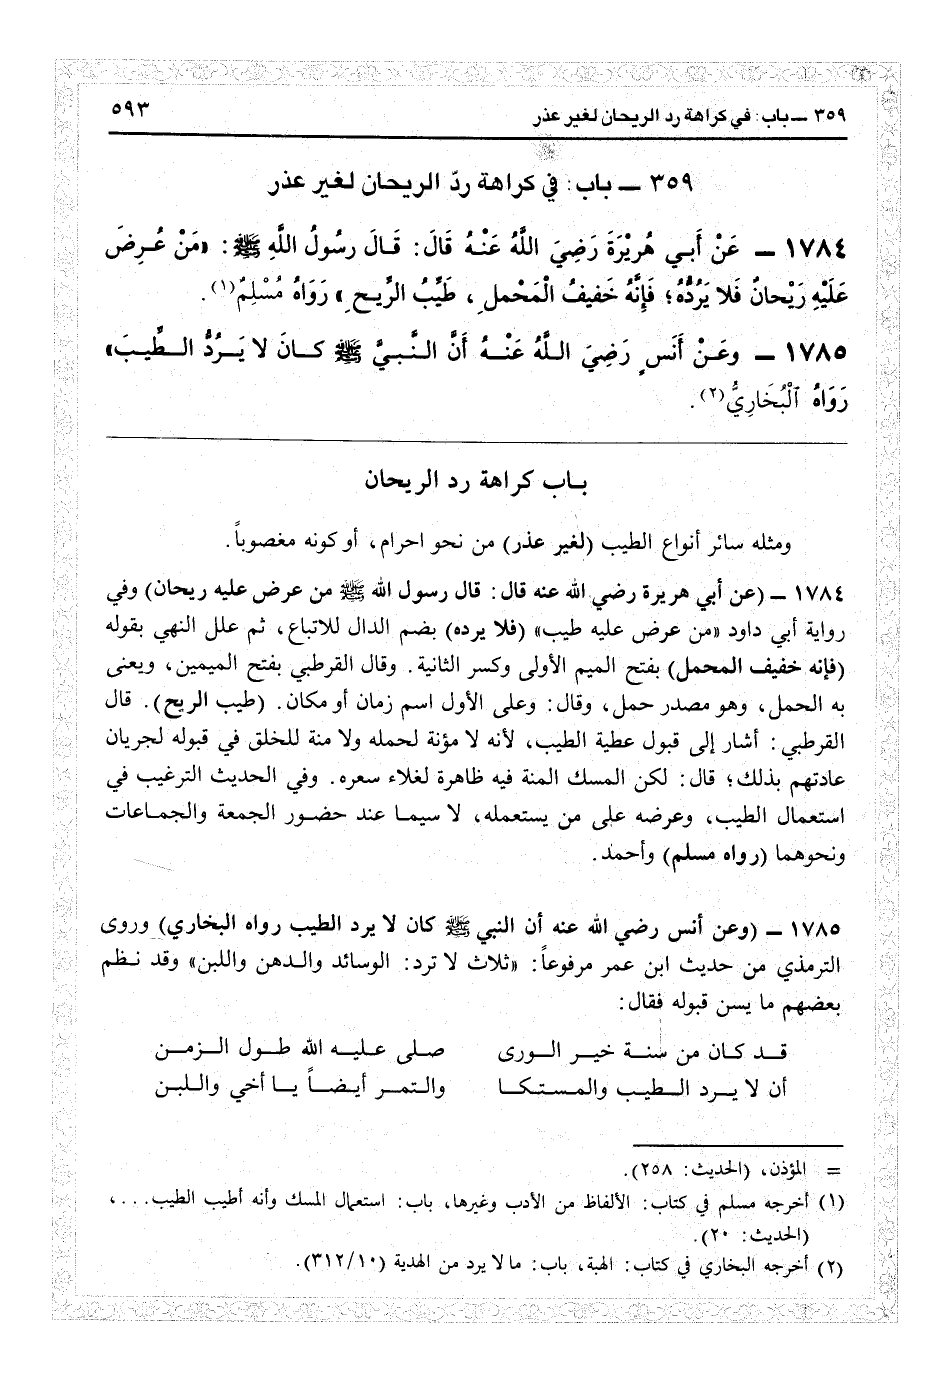 ٣٥٩ ـ باب: في كراهة رد الريحان لغير عذر
٥٩٣
٣٥٩ ـ باب: في كراهة ردّ الريحان لغير عذر
١٧٨٤ ـ عَنْ أَبي هُرِيْرَةَ رَضِيَ اللَّهُ عَنْهُ قَالَ: قَالَ رسُولُ اللَّهِ ﷺ: «مَنْ عُرِضَ
عَلَيْهِ رَيْحانٌ فَلا يَرُدُّهُ؛ فَإِنَّهُ خَفيفُ الْمَحْملِ، طَيِّبُ الرِّيحِ» رَوَاهُ مُسْلِمٌ(١).
١٧٨٥ ـ وعَنْ أَنَسٍ رَضِيَ اللَّهُ عَنْهُ أَنَّ النَّبيَّ ﷺ كَانَ لا يَرُدُّ الطِّيبَ»
رَوَاهُ ٱلْبُخَارِيُّ(٢).
باب كراهة رد الريحان
ومثله سائر أنواع الطيب (لغير عذر) من نحو احرام، أو كونه مغصوباً.
١٧٨٤ ـ (عن أبي هريرة رضي الله عنه قال: قال رسول الله ﷺ من عرض عليه ريحان) وفي
رواية أبي داود «من عرض عليه طيب» (فلا يرده) بضم الدال للاتباع، ثم علل النهي بقوله
(فإنه خفيف المحمل) بفتح الميم الأولى وكسر الثانية. وقال القرطبي بفتح الميمين، ويعنى
به الحمل، وهو مصدر حمل، وقال: وعلى الأول اسم زمان أو مكان. (طيب الريح). قال
القرطبي: أشار إلى قبول عطية الطيب، لأنه لا مؤنة لحمله ولا منة للخلق في قبوله لجريان
عادتهم بذلك؛ قال: لكن المسك المنة فيه ظاهرة لغلاء سعره. وفي الحديث الترغيب في
استعمال الطيب، وعرضه على من يستعمله، لا سيما عند حضور الجمعة والجماعات
ونحوهما (رواه مسلم) وأحمد.
١٧٨٥ ـ (وعن أنس رضي الله عنه أن النبي ﷺ كان لا يرد الطيب رواه البخاري) وروى
الترمذي من حديث ابن عمر مرفوعاً: «ثلاث لا ترد: الوسائد والدهن واللبن» وقد نظم
بعضهم ما يسن قبوله فقال:
قد كان من سنة خير الورى صلى عليه الله طول الزمن
أن لا يرد الطيب والمستكا والتمر أيضاً يا أخي واللبن
= المؤذن، (الحديث: ٢٥٨).
(١) أخرجه مسلم في كتاب: الألفاظ من الأدب وغيرها، باب: استعمال المسك وأنه أطيب الطيب...،
(الحديث: ٢٠).
(٢) أخرجه البخاري في كتاب: الهبة، باب: ما لا يرد من الهدية (٣١٢/١٠).